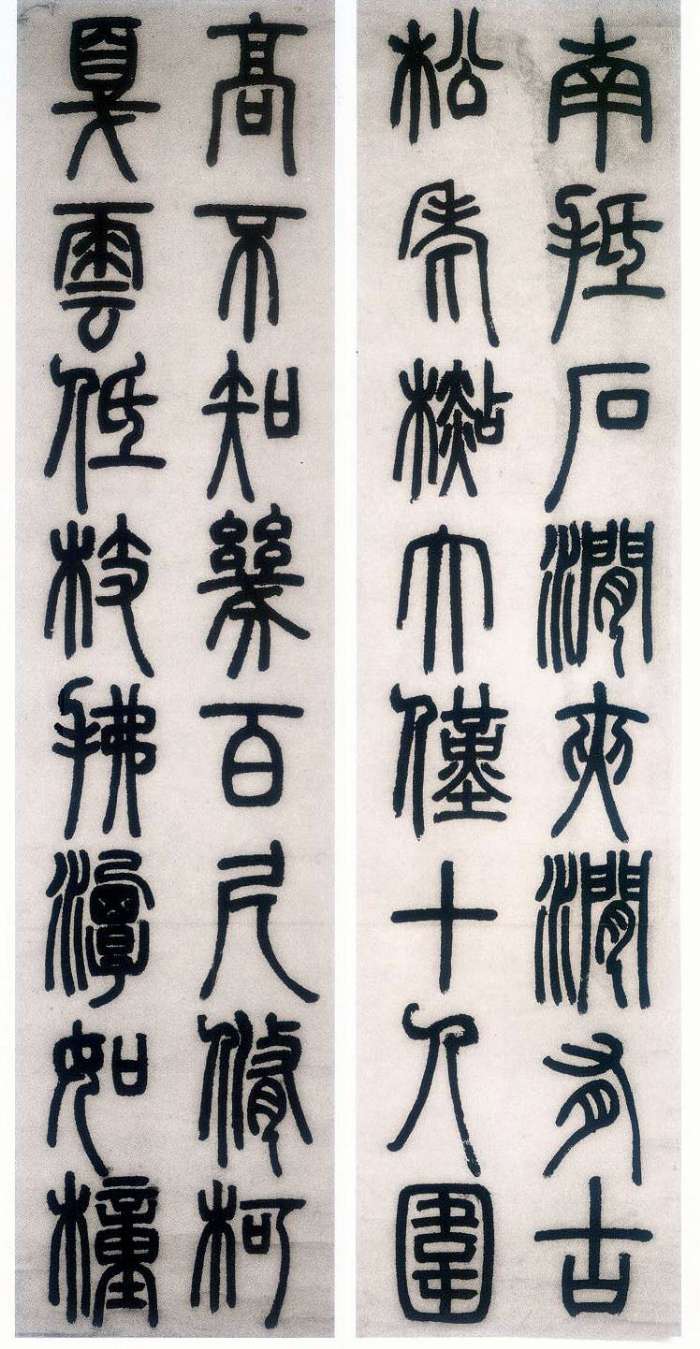 南抵石澗夾澗有古
松老檆大僅十人圍
高不知幾百尺脩柯
戛雲低枝拂潭如橦